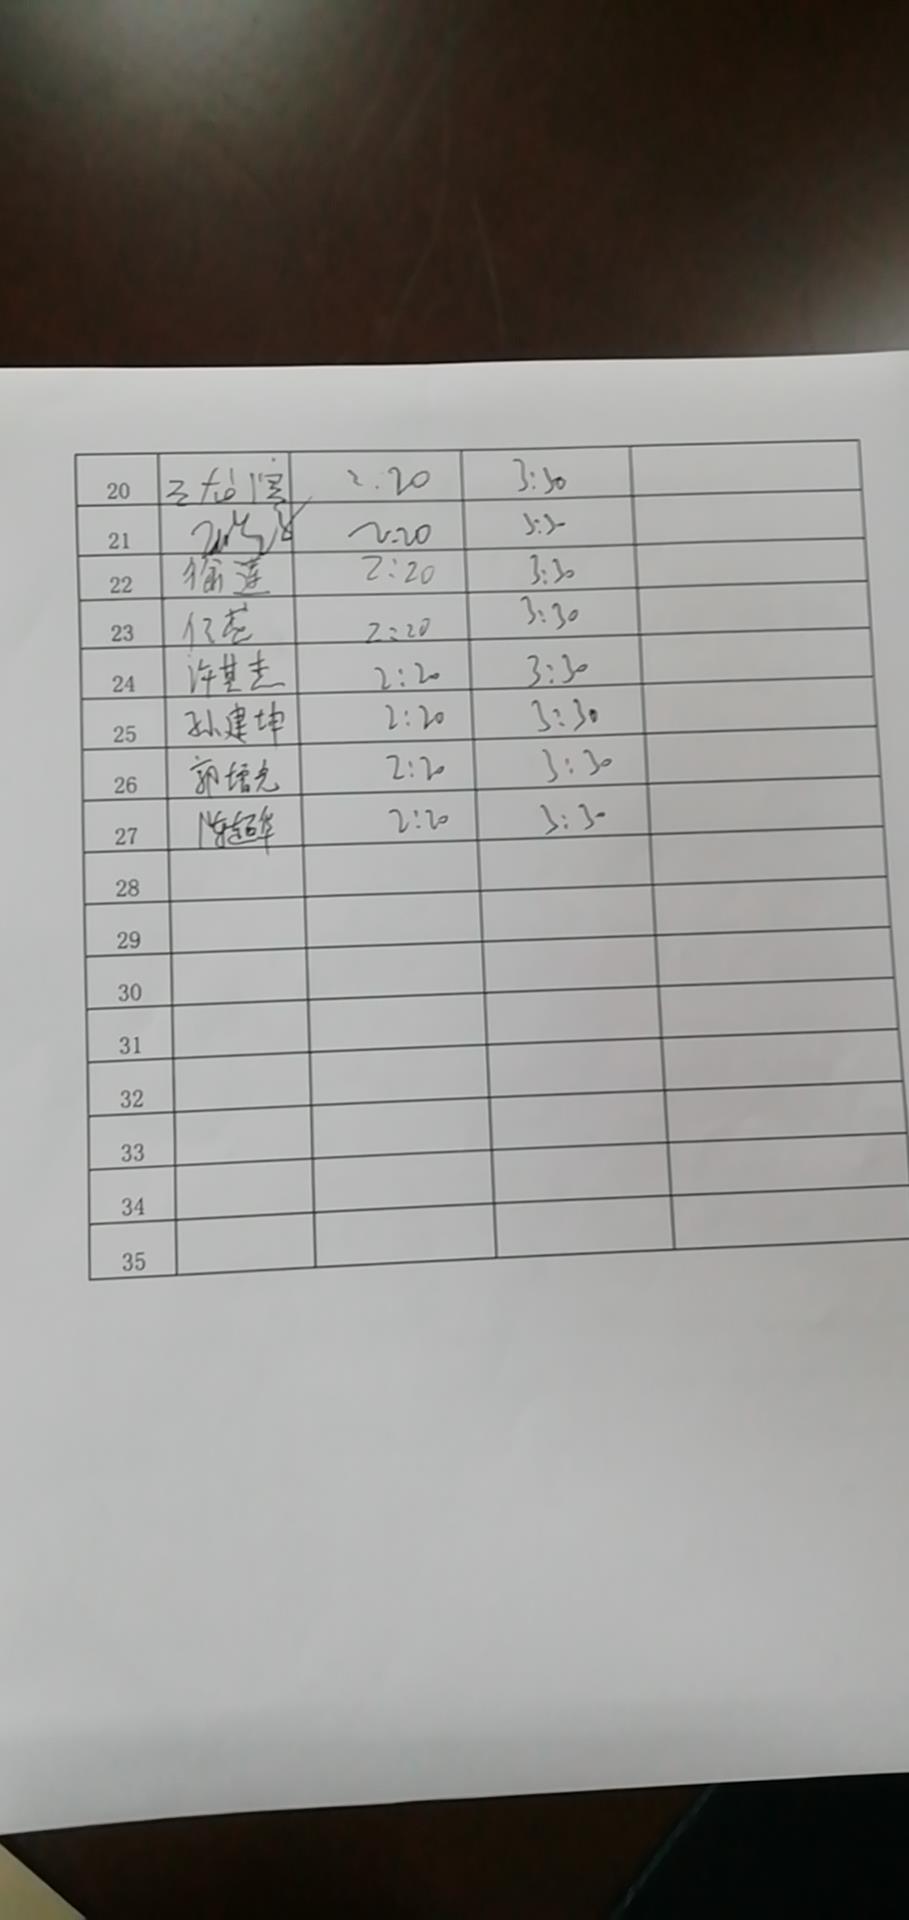 20 2:20 3:30
21 2:20 3:30
22 徐莲 2:20 3:30
23 2:20 3:30
24 许基志 2:20 3:30
25 孙建坤 2:20 3:30
26 郭培光 2:20 3:30
27 陈超华 2:20 3:30
28
29
30
31
32
33
34
35